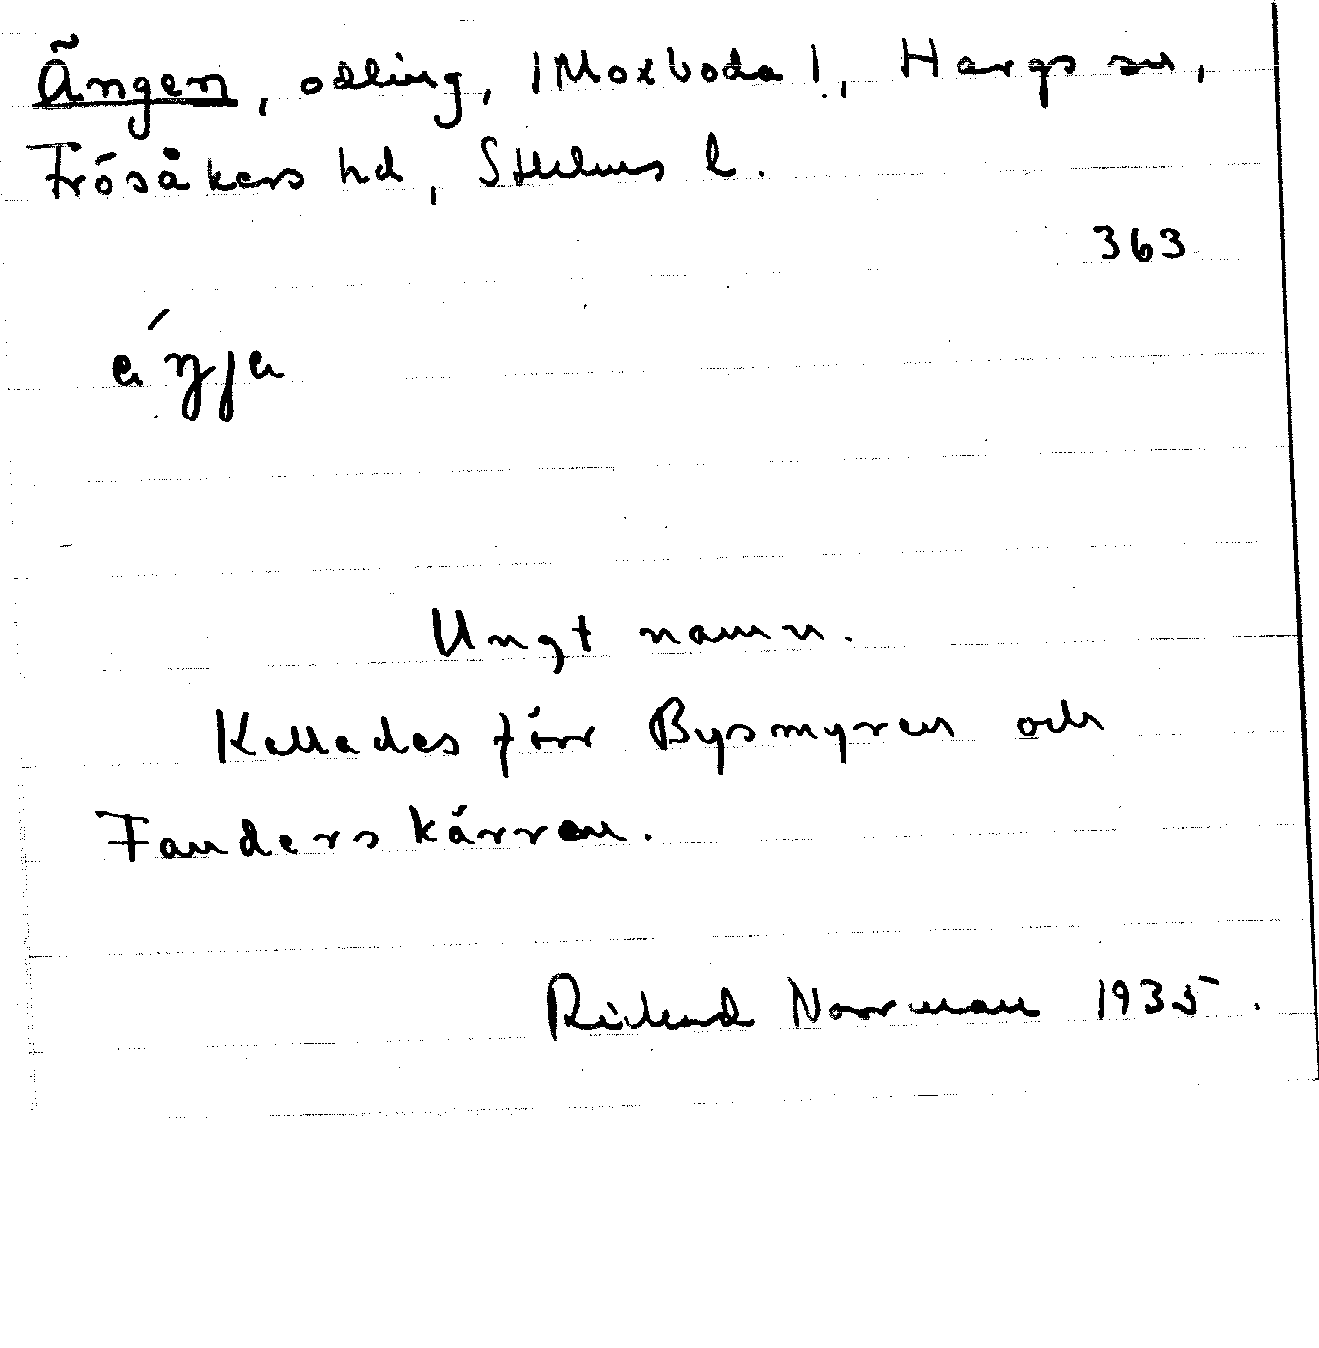 Ängen, odling, /Moxboda/, Hargs sn,
Frösåkers hd, Sthlms l.
363
éŋja
Ungt namn.
Kallades förr Bysmyren och
Fanderskärren.
Rickard Norrman 1935.